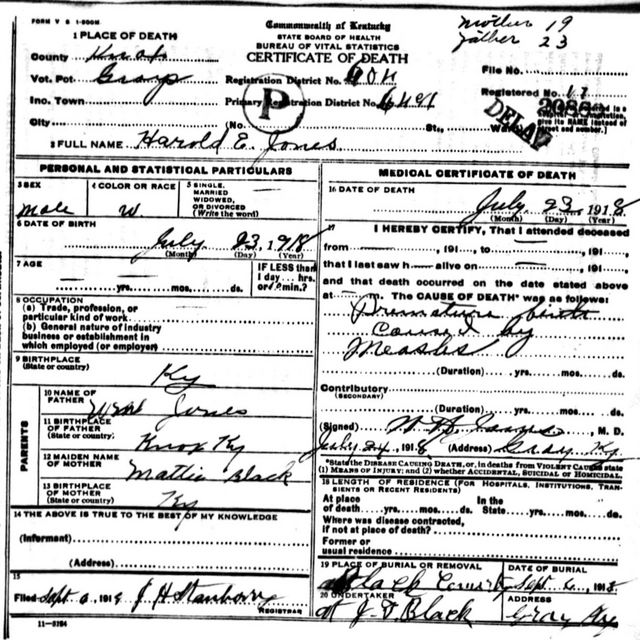 FORM V S 1-500M
Commonwealth of Kentucky
STATE BOARD OF HEALTH
BUREAU OF VITAL STATISTICS
CERTIFICATE OF DEATH
mother 19
father 23
1 PLACE OF DEATH
County Knox
Vot. Pct Gray
Inc. Town
City
Registration District No.
Primary Registration District No.
(No. St., Ward)
File No.
Registered No. 17
DELAY
P
2 FULL NAME Harold E. Jones
PERSONAL AND STATISTICAL PARTICULARS
3 SEX male
4 COLOR OR RACE W
5 SINGLE, MARRIED WIDOWED, OR DIVORCED (Write the word)
6 DATE OF BIRTH
July 23, 1918
(Month) (Day) (Year)
7 AGE
yrs. mos. ds.
IF LESS than 1 day hrs. or min.?
8 OCCUPATION
(a) Trade, profession, or particular kind of work
(b) General nature of industry business or establishment in which employed (or employer)
9 BIRTHPLACE
(State or country)
Ky
PARENTS
10 NAME OF FATHER Jones
11 BIRTHPLACE OF FATHER (State or country) Knox Ky
12 MAIDEN NAME OF MOTHER Mattie Black
13 BIRTHPLACE OF MOTHER (State or country) Ky
14 THE ABOVE IS TRUE TO THE BEST OF MY KNOWLEDGE
(Informant)
(Address)
15
Filed Sept 6 191 J H Stanberry
REGISTRAR
11-3184
MEDICAL CERTIFICATE OF DEATH
16 DATE OF DEATH
July 23, 1918
(Month) (Day) (Year)
17 I HEREBY CERTIFY, That I attended deceased
from , 191 , to , 191 ,
that I last saw h alive on , 191 ,
and that death occurred on the date stated above
at m. The CAUSE OF DEATH* was as follows:
Premature birth
caused by
Measles
(Duration) yrs. mos. ds.
Contributory
(SECONDARY)
(Duration) yrs. mos. ds.
(Signed) M. D.
July 24, 1918 (Address) Gray Ky
*State the DISEASE CAUSING DEATH, or, in deaths from VIOLENT CAUSES state (1) MEANS OF INJURY; and (2) whether ACCIDENTAL, SUICIDAL OR HOMICIDAL.
18 LENGTH OF RESIDENCE (FOR HOSPITALS, INSTITUTIONS, TRANSIENTS OR RECENT RESIDENTS)
At place of death yrs. mos. ds. In the State yrs. mos. ds.
Where was disease contracted, if not at place of death?
Former or usual residence
19 PLACE OF BURIAL OR REMOVAL DATE OF BURIAL
Black Sept 191
20 UNDERTAKER ADDRESS
J. D. Black Gray Ky